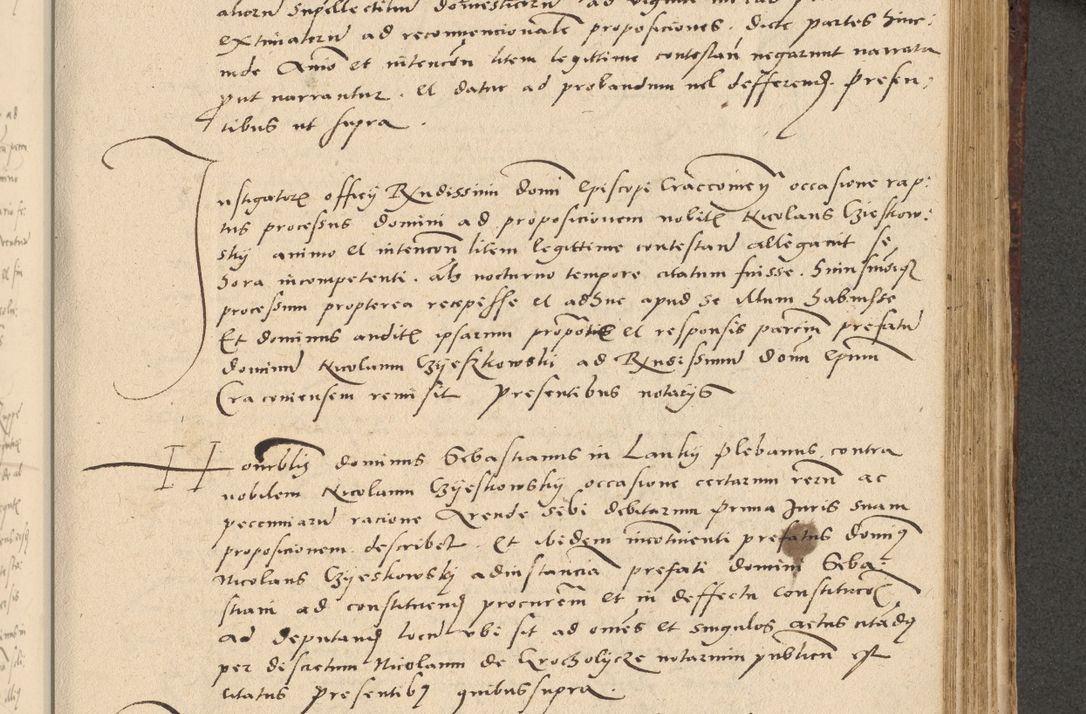 aliorum supellectilium domesticorum ad
extimatorum ad reconvencionale propositiones. dicte partes hinc
inde Animo et intencon litem legittime contestan negarunt narrata
put narrantur. et datur ad probandum vel defferend. Presen:
tibus ut supra.
Instigatore officij Rndissimi domi Episcopi Cracconien occasione rap:
tus processus domini ad proposicionem nobilis Nicolaus Czyeskow:
skij animo et intencon litem legittime contestand allegavit se
hora incompetenti. als nocturno tempore citatum fuisse. huiusmodiq
processum propterea recepisse et adhuc apud se illum habuisse
Et dominus auditis ipsarum propotis et responsis parcium prefatum
dominum Nicolaum Czyeskowski ad Rndissimum dom Epum
Cracoviensem remisit Presentibus notarijs
Honrblis dominus Sebastianus in Lanky plebanus contra
nobilem Nicolaum Czyeskowskij occasione certarum rerum ac
pecuniarum racione Arende sibi debitarum prima Juris suam
proposicionem describet. Et ibidem incontinenti prefatus dominus
Nicolaus Czyeskowskij ad instancia prefati domini Seba:
stiani ad constituend procurem et in deffectu constitucon
ad deputand locum ubi sit ad omnes et singulos actus citand
per discretum Nicolaum de notarium publicum est
citatus Presentibus quibus supra.